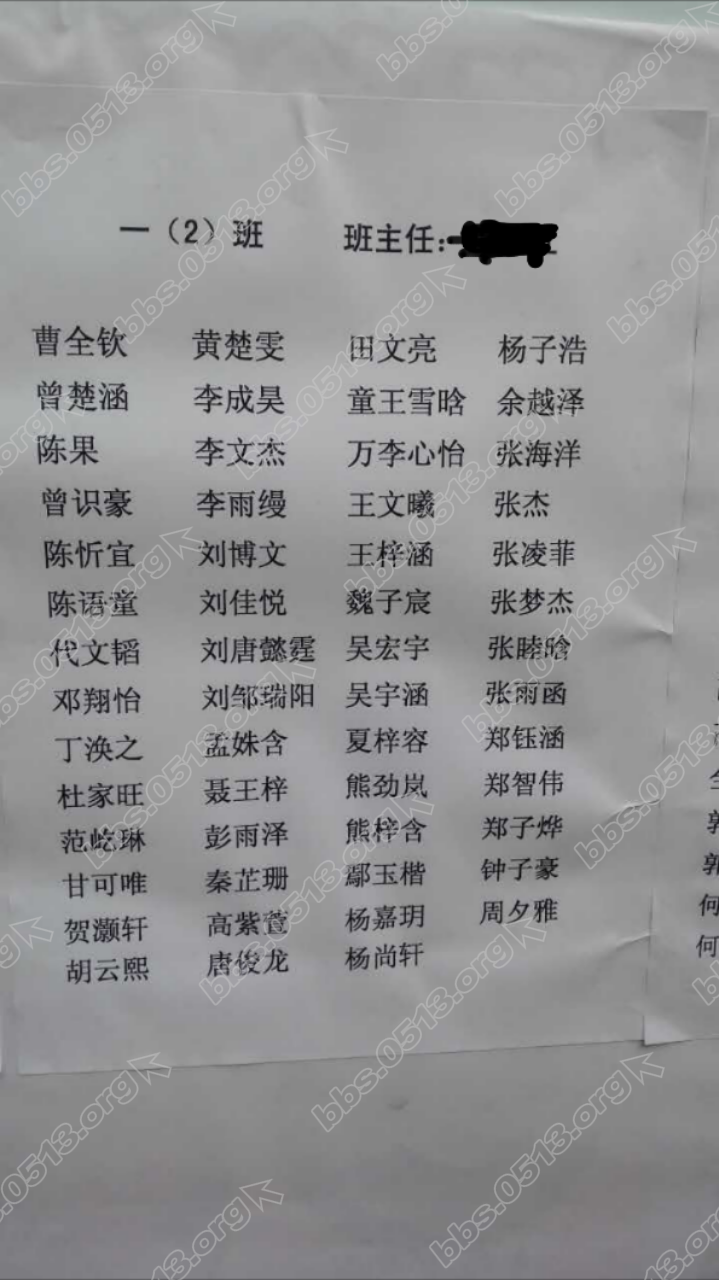 一（2）班 班主任：
曹全钦 黄楚雯 田文亮 杨子浩
曾楚涵 李成昊 童王雪晗 余越泽
陈果 李文杰 万李心怡 张海洋
曾识豪 李雨缦 王文曦 张杰
陈忻宜 刘博文 王梓涵 张凌菲
陈语童 刘佳悦 魏子宸 张梦杰
代文韬 刘唐懿霆 吴宏宇 张睦晗
邓翔怡 刘邹瑞阳 吴宇涵 张雨函
丁涣之 孟姝含 夏梓容 郑钰涵
杜家旺 聂王梓 熊劲岚 郑智伟
范屹琳 彭雨泽 熊梓含 郑子烨
甘可唯 秦芷珊 鄢玉楷 钟子豪
贺灏轩 高紫萱 杨嘉玥 周夕雅
胡云熙 唐俊龙 杨尚轩
郭
郭
何
何
bbs.0513.org